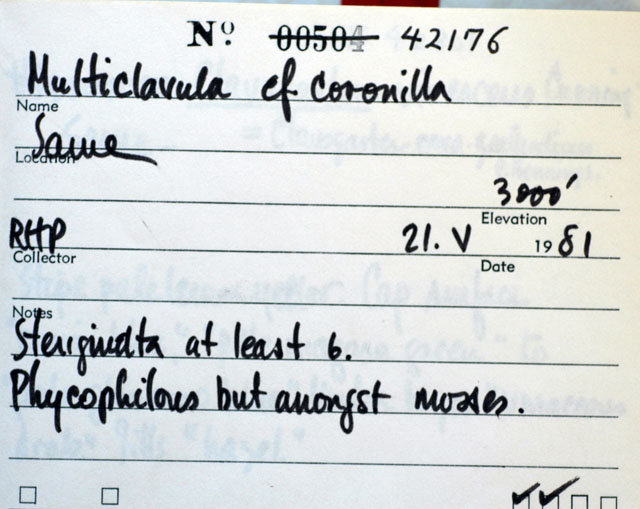 Nº 00504 42176
Multiclavula cf coronilla
Name
Same
Location
3000'
Elevation
RHP 21. V 1981
Collector Date
Notes
Sterigmata at least 6.
Phycophilous but amongst mosses.